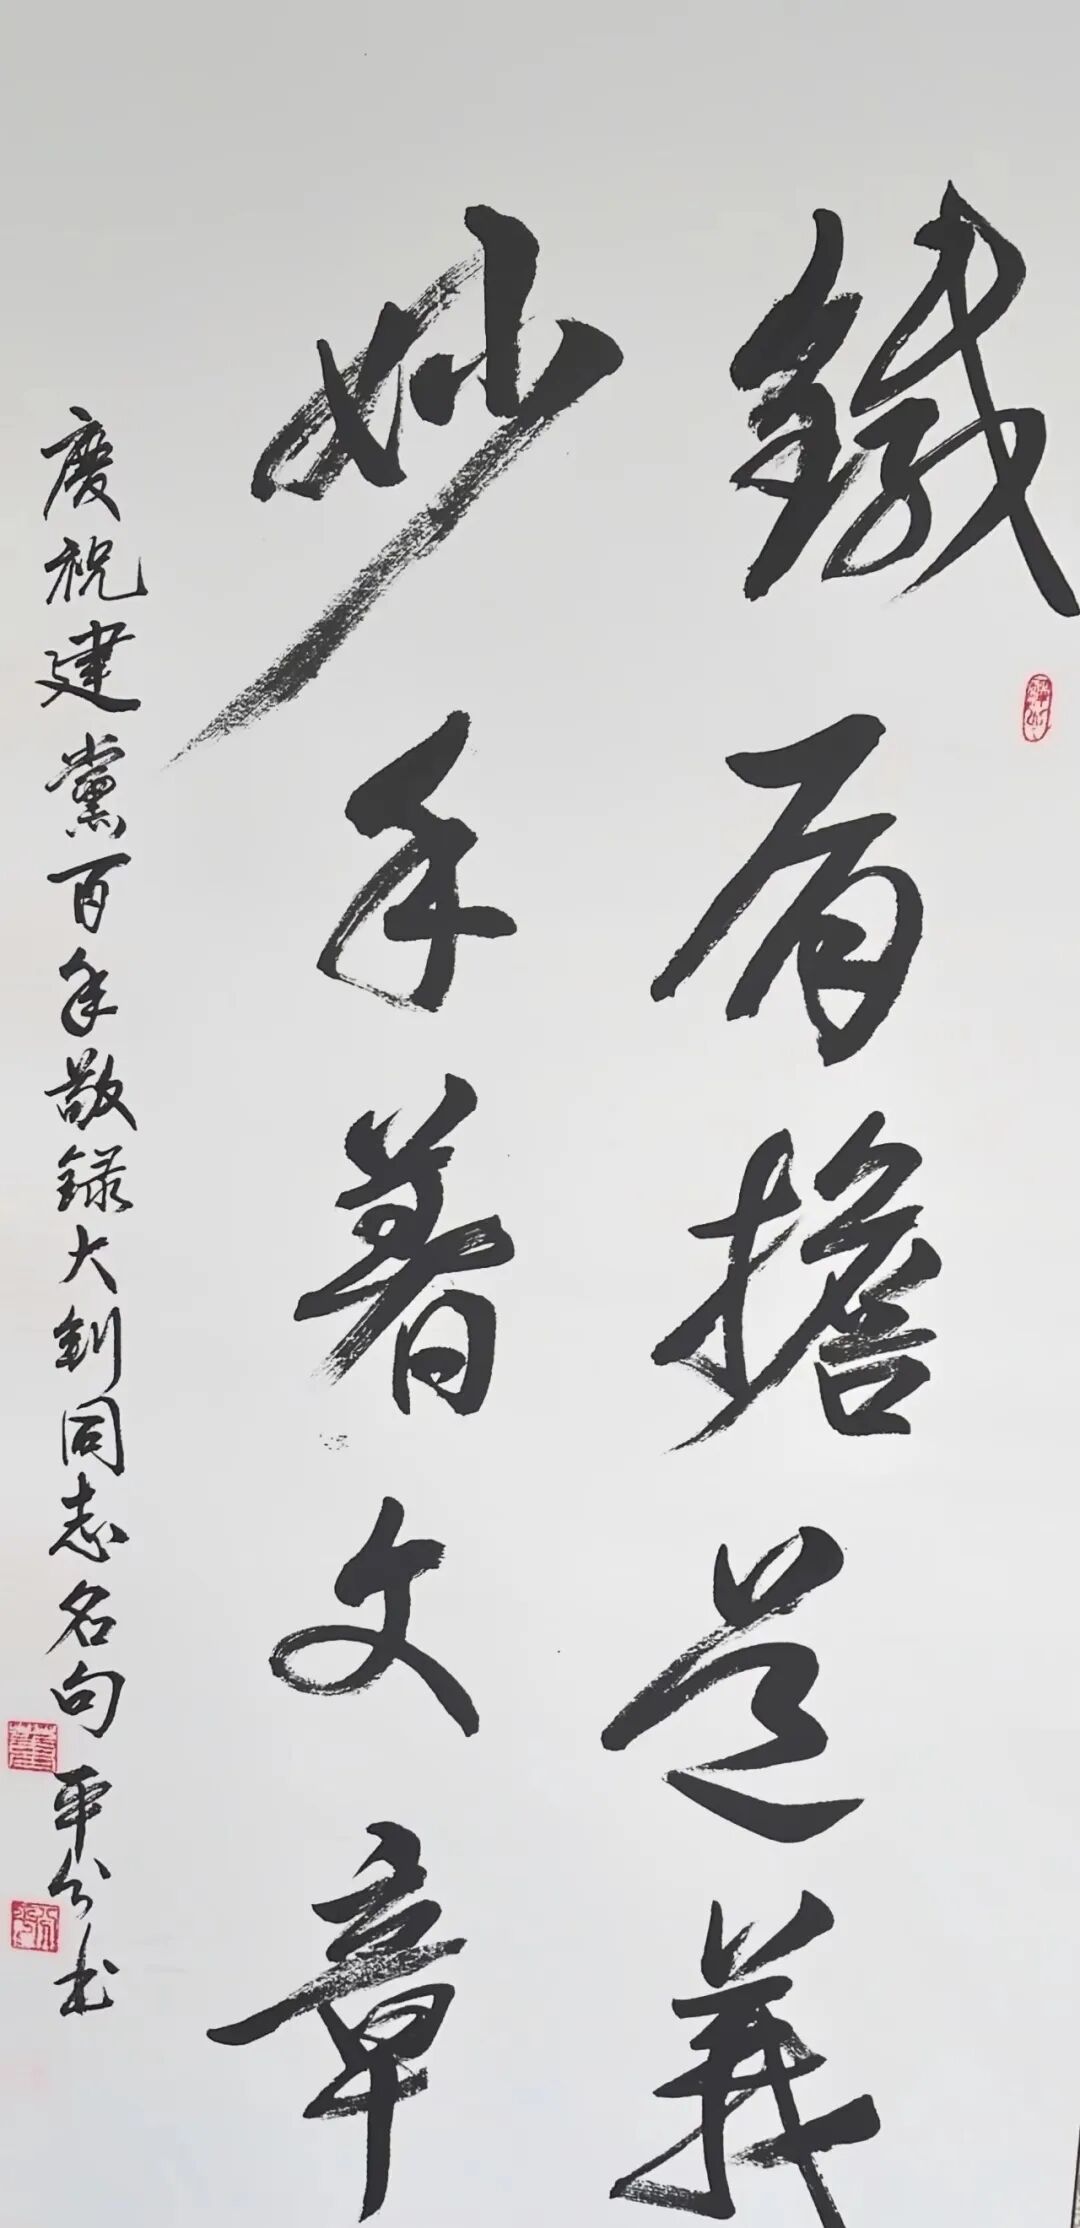 鐵肩擔道義
妙手著文章
慶祝建黨百年敬録大釗同志名句 平分书